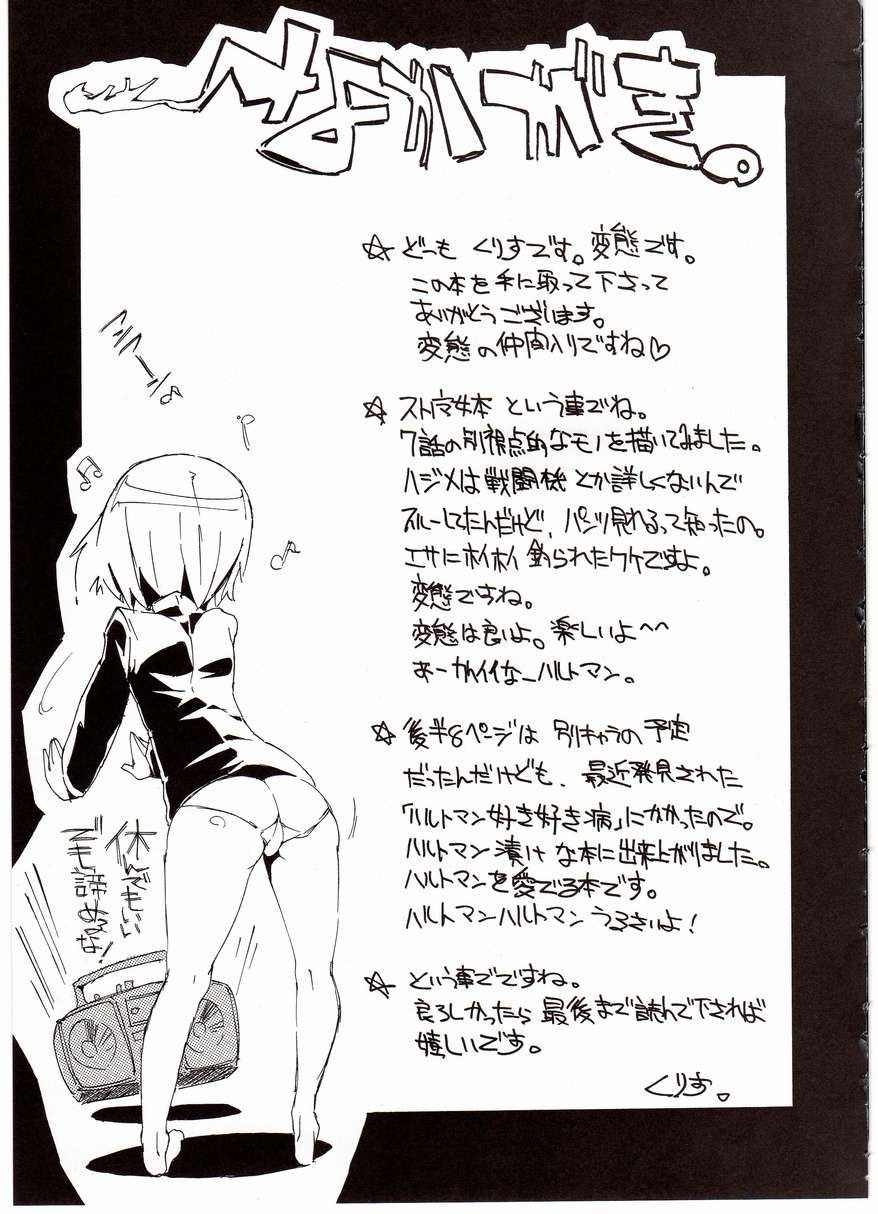 なかがき。
☆ どーも くりすです。変態です。
この本を手に取って下さって
ありがとうございます。
変態の仲間入りですね♡
☆ ストマ女本 という事でね。
7話の別視点的なモノを描いてみました。
ハジメは戦闘機とか詳しくないんで
スルーしてたんだけど、パンツ見れるって知ったの。
エサにホイホイ釣られたワケですよ。
変態ですね。
変態は良いよ。楽しいよ〜〜
あーかわイイなーハルトマン。
☆ 後半8ページは 別キャラの予定
だったんだけども、最近発見された
「ハルトマン好き好き病」にかかったので。
ハルトマン漬けな本に出来上がりました。
ハルトマンを愛でる本です。
ハルトマンハルトマンうるさいよ!
☆ という事でですね。
良ろしかったら最後まで読んで下されば
嬉しいです。
くりす。
休んでもいい
でも諦めるな!